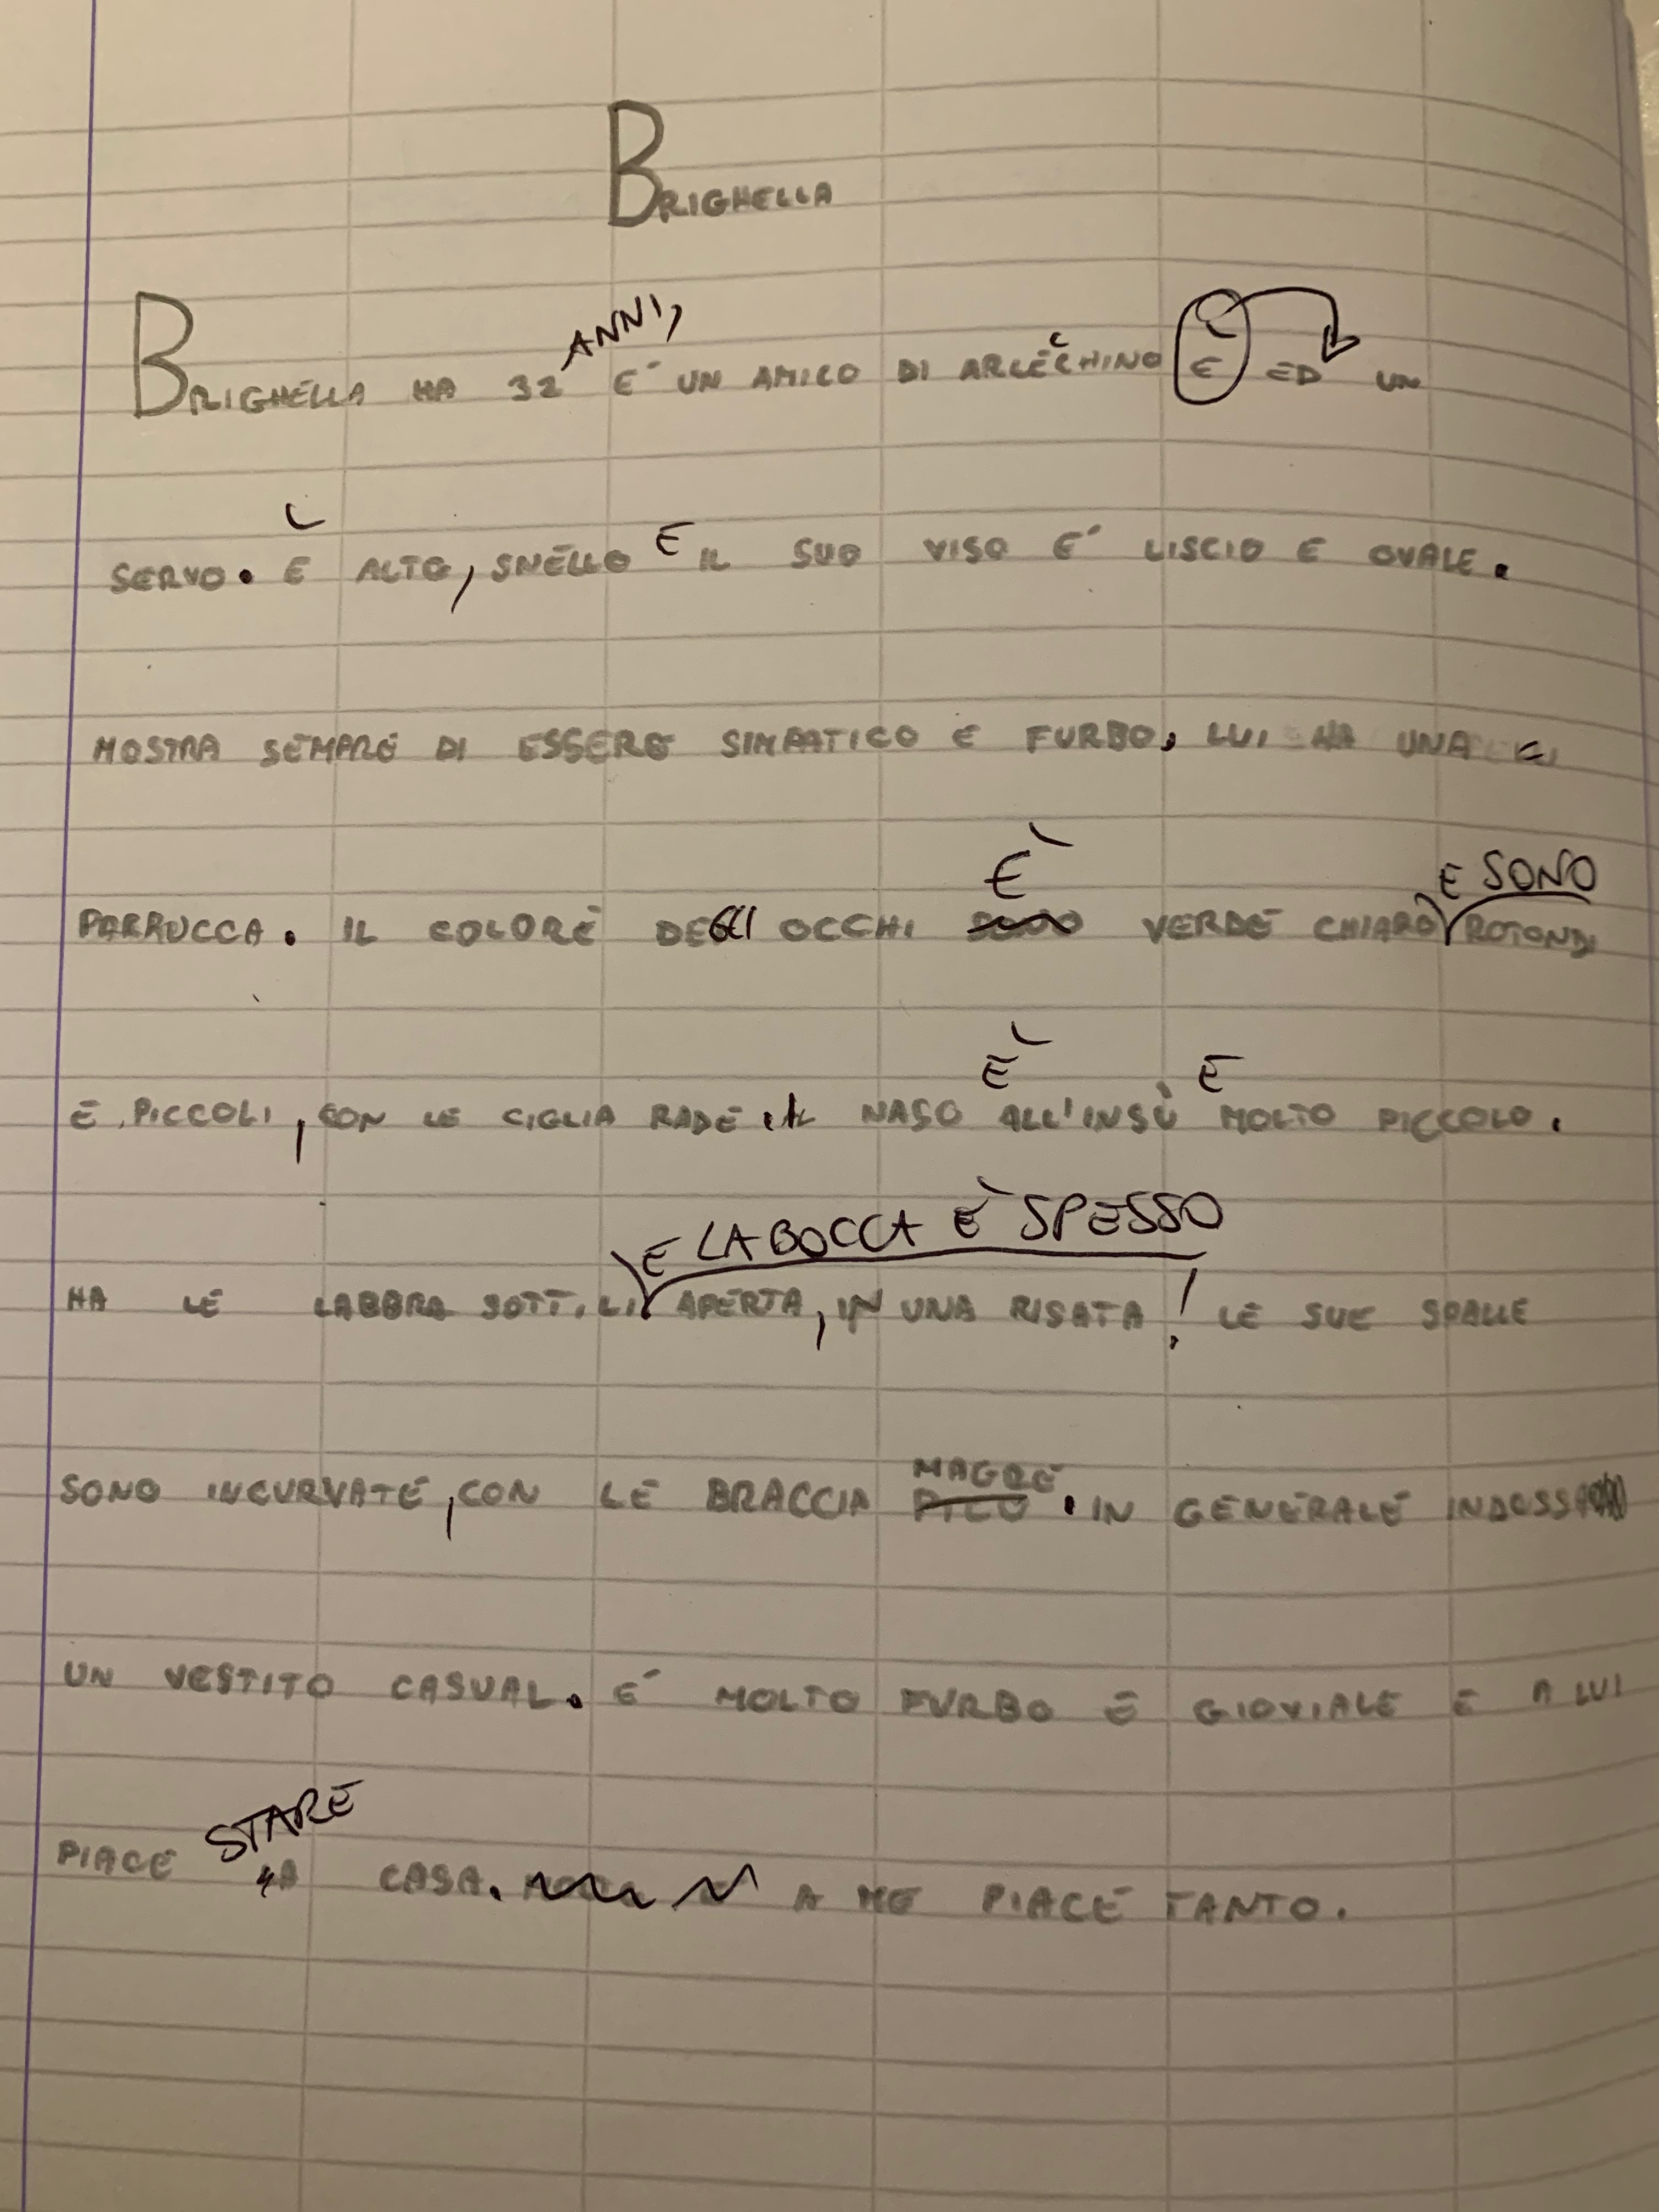 BRIGHELLA
ANNI,
BRIGHELLA HA 32 E' UN AMICO DI ARLECCHINO È ED UN
SERVO. È ALTO, SNELLO E IL SUO VISO E' LISCIO E OVALE.
MOSTRA SEMPRE DI ESSERE SIMPATICO E FURBO, LUI HA UNA
È E SONO
PARRUCCA. IL COLORE DEGLI OCCHI SONO VERDE CHIARO ROTONDI
È E
E PICCOLI, CON LE CIGLIA RADE. IL NASO ALL'INSÙ MOLTO PICCOLO.
E LA BOCCA È SPESSO
HA LE LABBRA SOTTILI APERTA, IN UNA RISATA! LE SUE SPALLE
MAGRE
SONO INCURVATE, CON LE BRACCIA IN GENERALE INDOSSA
UN VESTITO CASUAL. E' MOLTO FURBO E GIOVIALE E A LUI
STARE
PIACE A CASA. A ME PIACE TANTO.